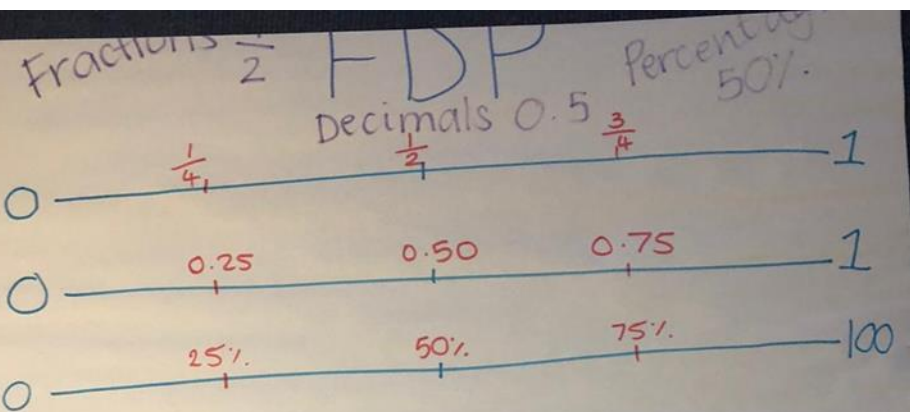 Fractions 1/2 FDP Percentag
Decimals 0.5 50%.
1/4 1/2 3/4
0 1
0.25 0.50 0.75
0 1
25%. 50%. 75%.
0 100